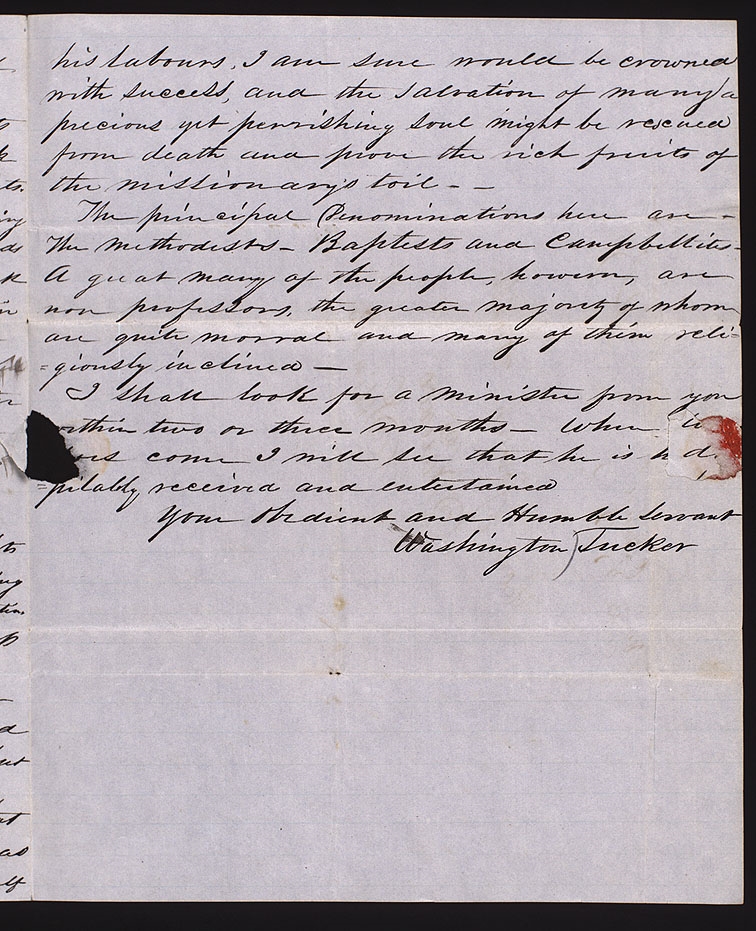 his labours, I am sure would be crowned
with success, and the Salvation of many a
precious yet perrishing soul might be rescued
from death and prove the rich fruits of
the missionary's toil - -
The principal Denominations here are -
The Methodists - Baptists and Campbellites -
A great many of the people, however, are
non professors, the greater majority of whom
are quite morral and many of them reli-
=giously inclined -
I shall look for a minister from you
within two or three months - When
come I will see that he is
=pitably received and entertained
Your Obedient and Humble Servant
Washington Tucker